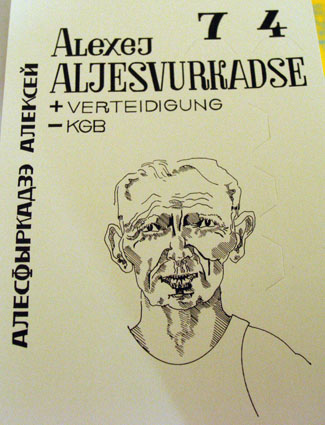 7 4
ALEXEJ
ALJESVURKADSE
+ VERTEIDIGUNG
– KGB
АЛЕСФЫРКАДЗЭ АЛЕКСЕЙ